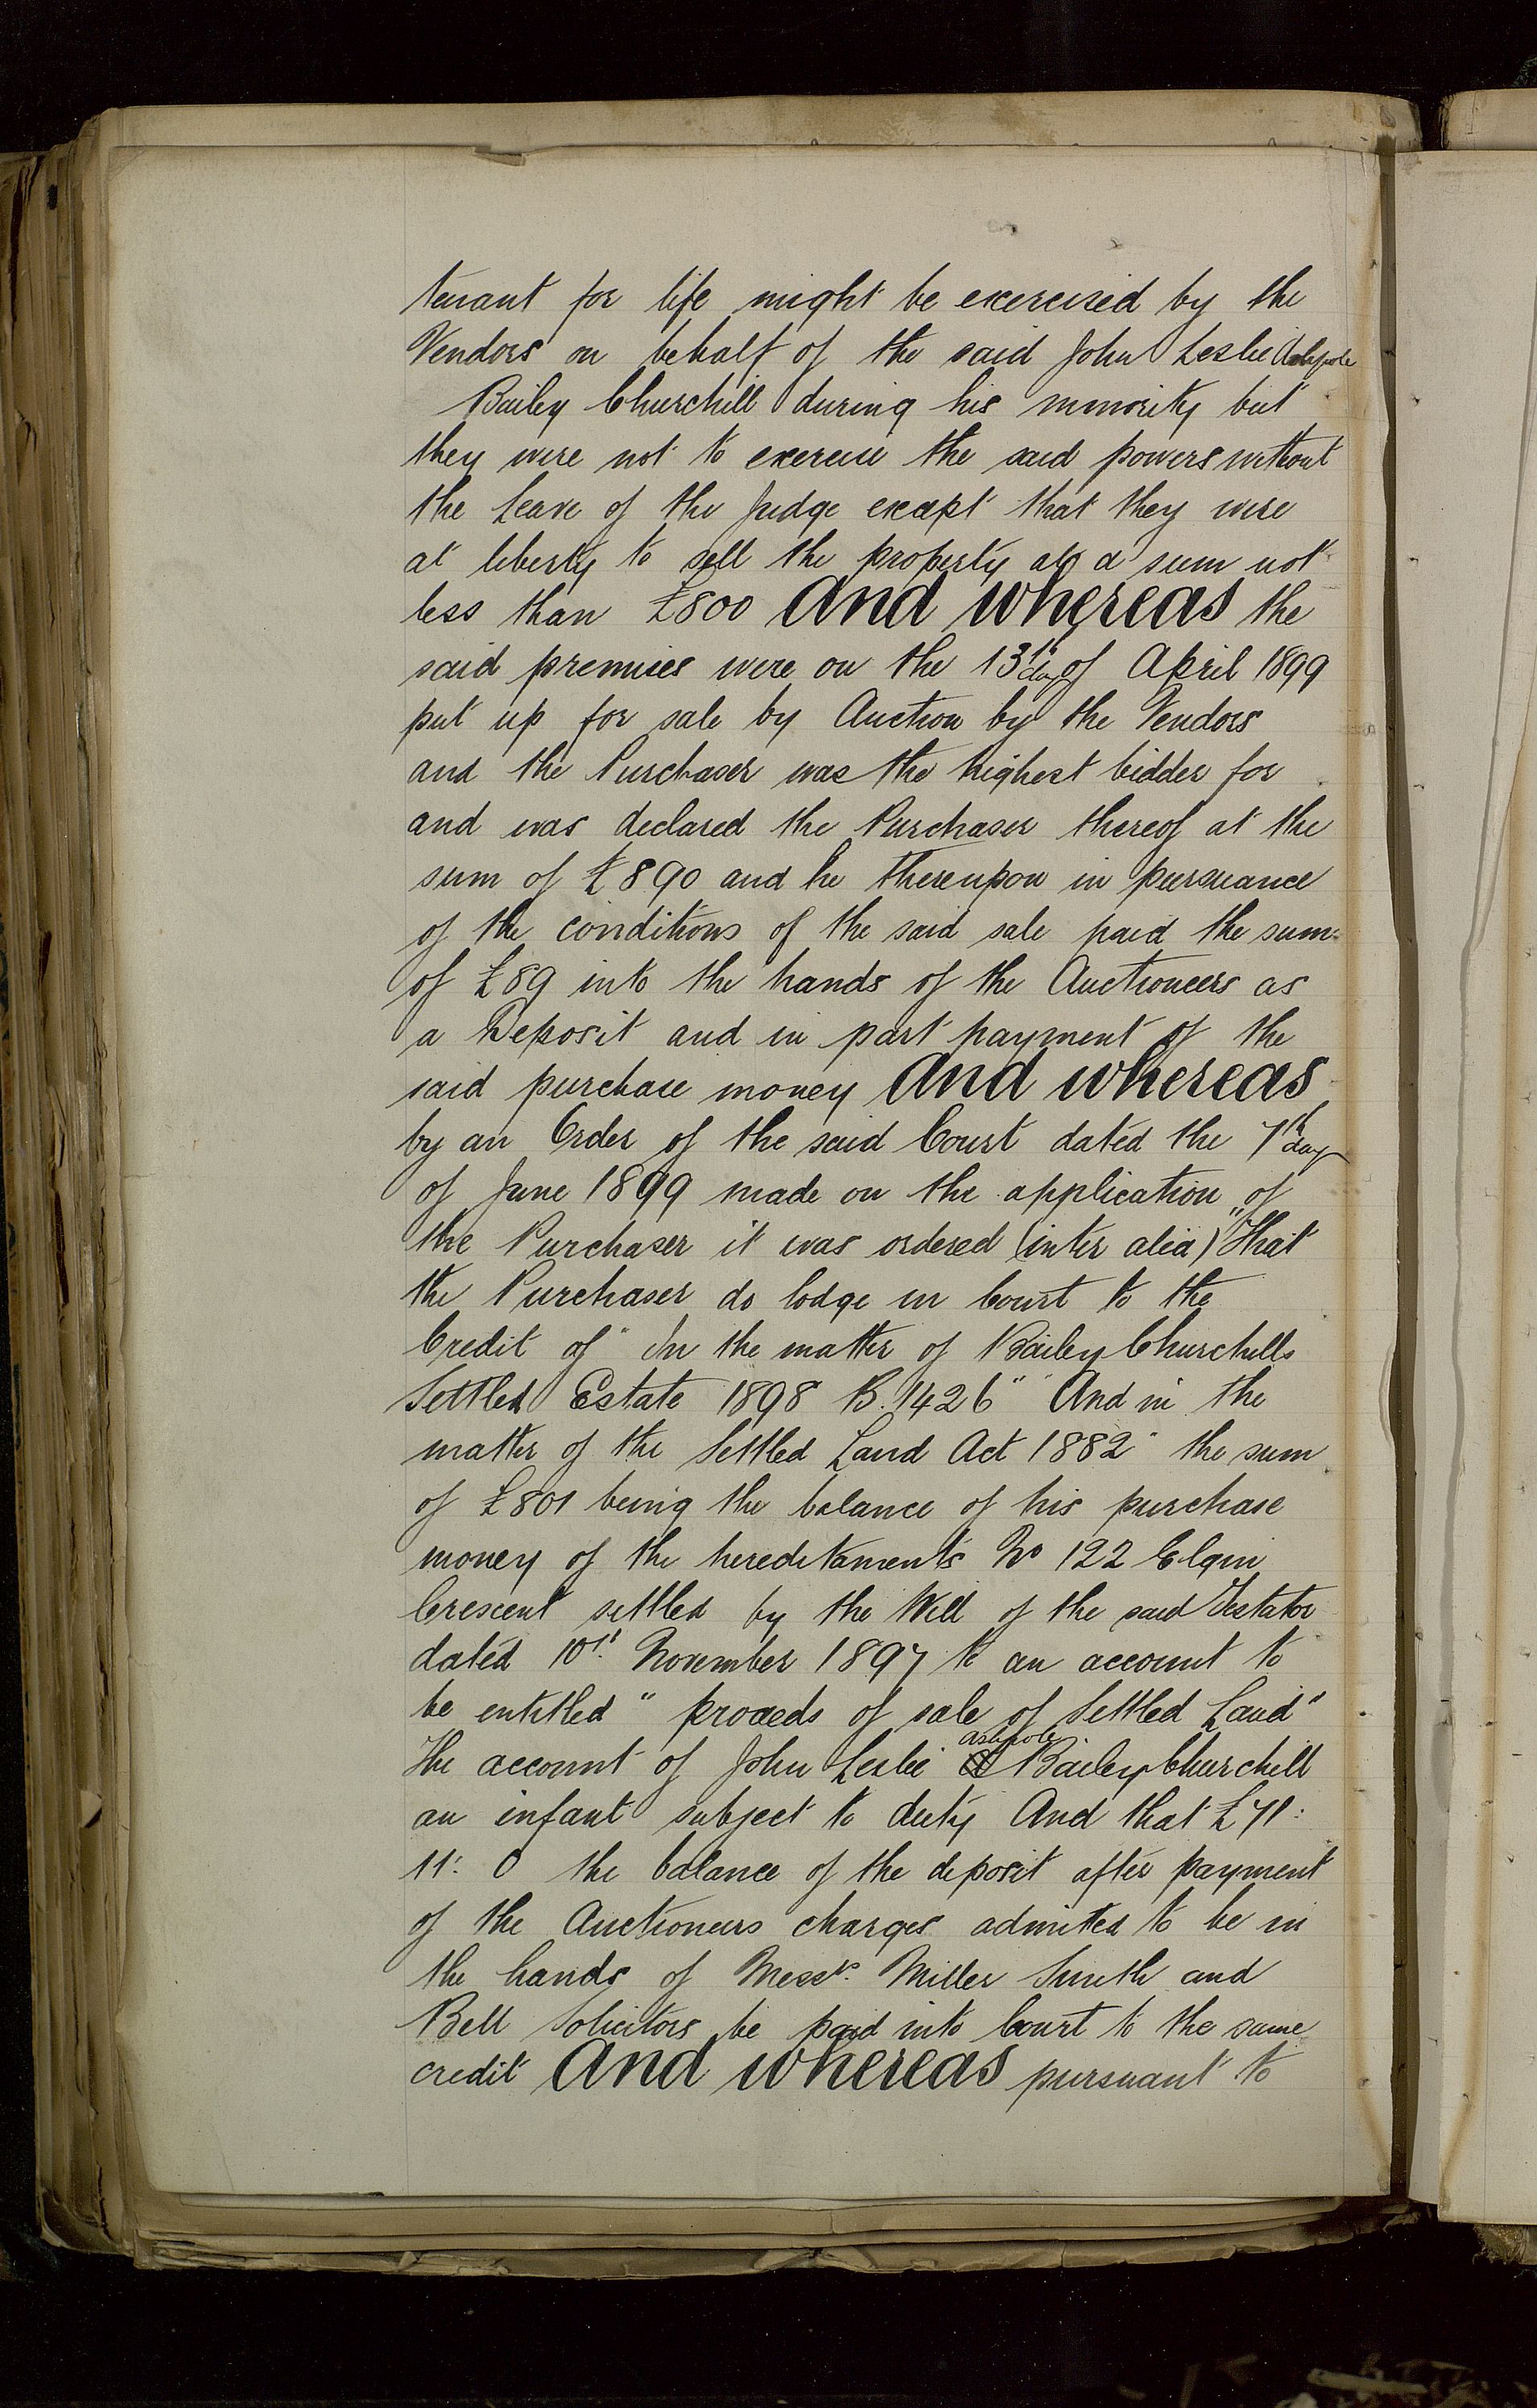 tenant for life might be exercised by the
Vendors on behalf of the said John Leslie Ashpole
Bailey Churchill during his minority but
they were not to exercise the said powers without
the leave of the Judge except that they were
at liberty to sell the property at a sum not
less than £800 And whereas the
said premises were on the 13th day of April 1899
put up for sale by Auction by the Vendors
and the Purchaser was the highest bidder for
and was declared the Purchaser thereof at the
sum of £890 and he thereupon in pursuance
of the conditions of the said sale paid the sum
of £89 into the hands of the Auctioneers as
a Deposit and in part payment of the
said purchase money And whereas
by an Order of the said Court dated the 7th day
of June 1899 made on the application of
the Purchaser it was ordered (inter alia) "That
the Purchaser do lodge in Court to the
Credit of "In the matter of Bailey Churchills
Settled Estate 1898 B. 1426" "And in the
matter of the Settled Land Act 1882" the sum
of £801 being the balance of his purchase
money of the hereditaments No 122 Elgin
Crescent settled by the Will of the said Testator
dated 10th November 1897 to an account to
be entitled "proceeds of sale of Settled Land"
The account of John Leslie Ashpole Bailey Churchill
an infant subject to duty And that £71:
11: 0 the balance of the deposit after payment
of the Auctioneers charges admitted to be in
the hands of Messrs. Miller Smith and
Bell Solicitors be paid into Court to the same
credit And whereas pursuant to